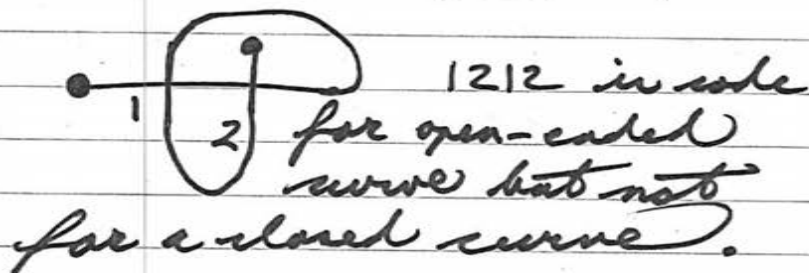 1212 is code
1 2 for open-ended
curve but not
for a closed curve.